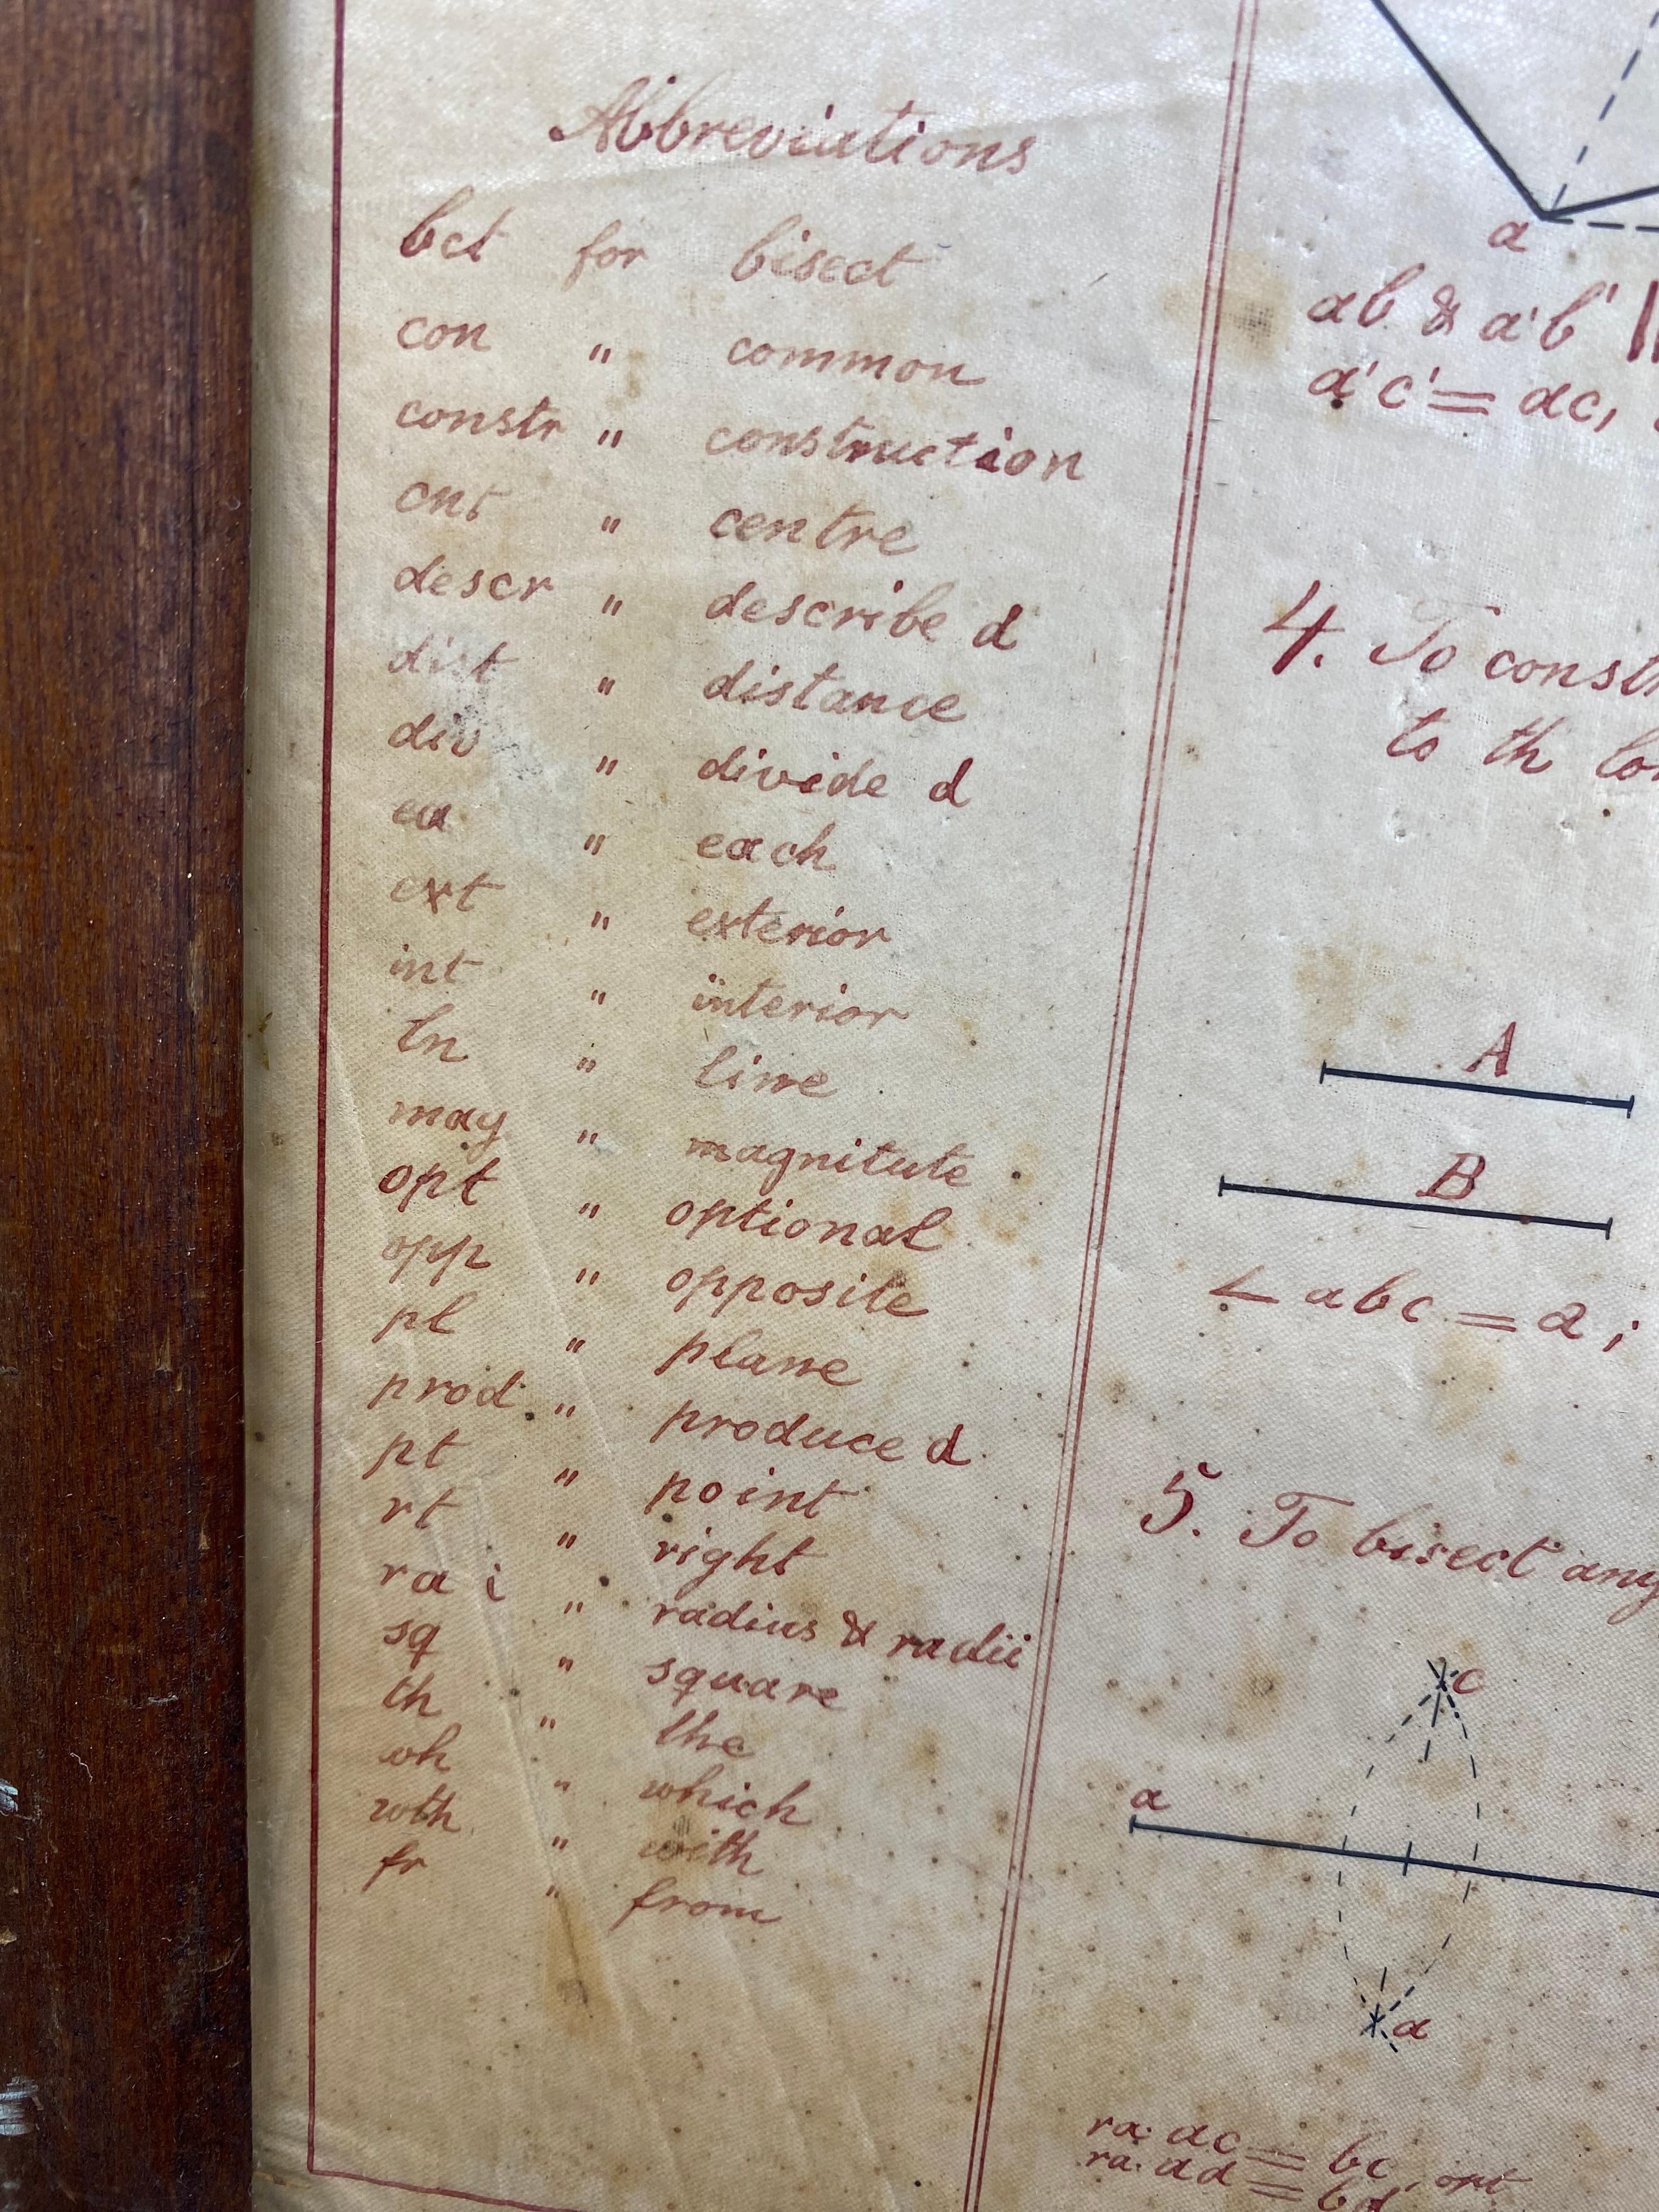 Abbreviations
bct for bisect
con " common
constr " construction
cnt " centre
descr " describe d
dist " distance
div " divide d
ea " each
ext " exterior
int " interior
ln " line
mag " magnitute
opt " optional
opp " opposite
pl " plane
prod. " produce d
pt " point
rt " right
ra i " radius & radii
sq " square
th " the
wh " which
wth " with
fr " from
a
ab & a'b' ||
a'c' = ac,
4. To constr
to th
A
B
∠ abc = a;
5. To bisect any
c
a
d
ra: ac = bc, opt
ra: ad = bd